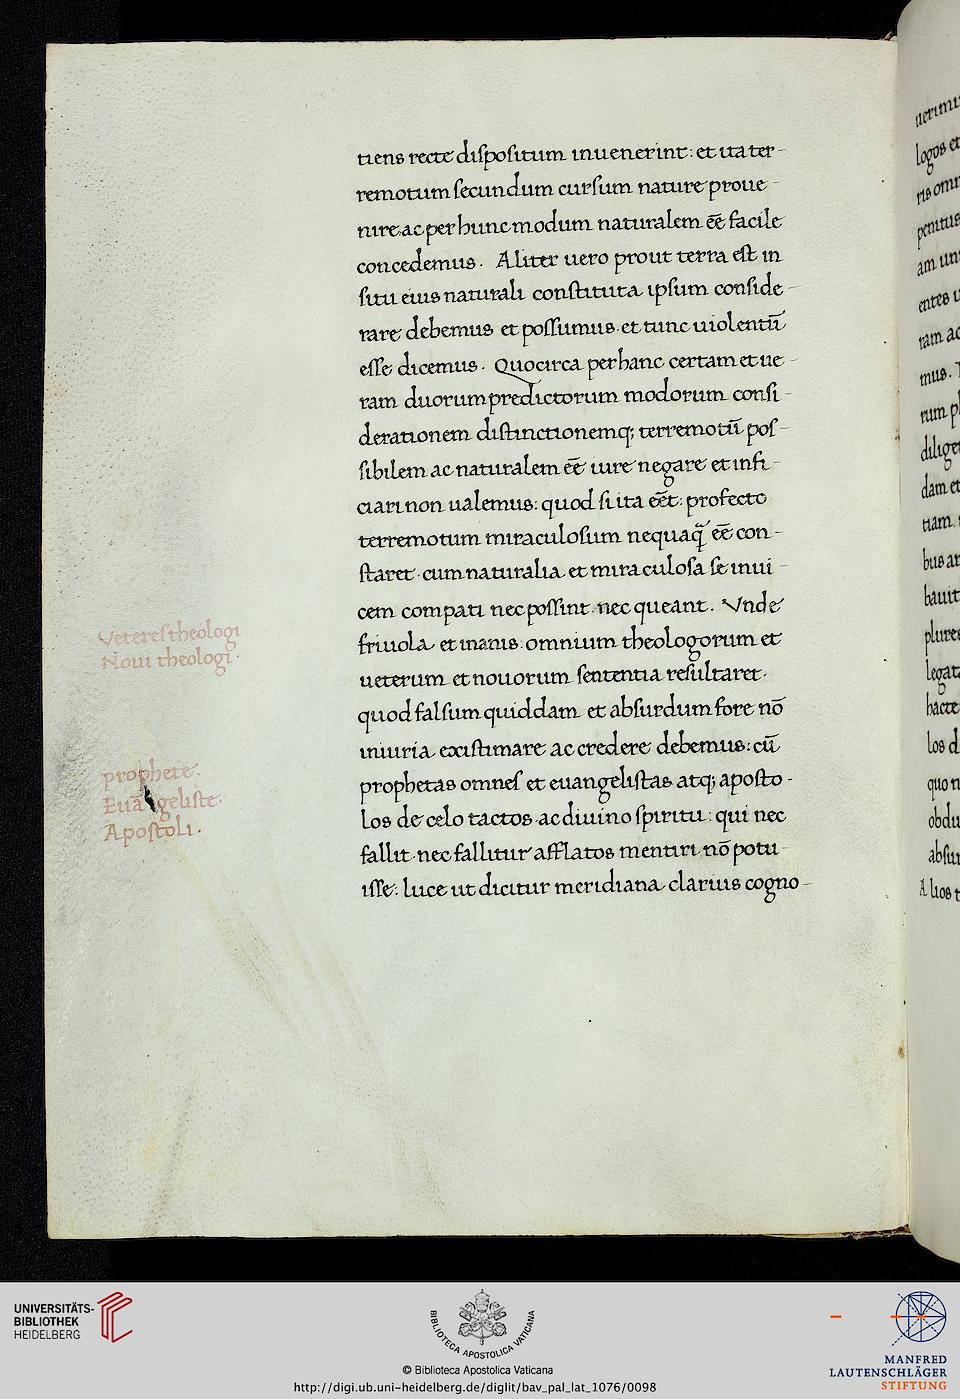 tiens recte dispositum inuenerint: et ita ter-
remotum secundum cursum nature proue-
nire ac per hunc modum naturalem eē facile
concedemus. Aliter uero prout terra est in
situ eius naturali constituta ipsum conside-
rare debemus et possumus. et tunc uiolentū
esse dicemus. Quocirca per hanc certam et ue-
ram duorum predictorum modorum consi-
derationem distinctionemq; terremotū pos-
sibilem ac naturalem eē iure negare et infi-
ciari non ualemus: quod si ita eēt: profecto
terremotum miraculosum nequaq̄ eē con-
staret. cum naturalia et miraculosa se inui-
cem compati nec possint. nec queant. Vnde
friuola et inanis. omnium theologorum et
ueterum et nouorum sententia resultaret.
quod falsum quiddam et absurdum fore nō
iniuria existimare ac credere debemus: cū
prophetas omnes et euangelistas atq; aposto-
los de celo tactos. ac diuino spiritu: qui nec
fallit. nec fallitur afflatos mentiri nō potu-
isse: luce ut dicitur meridiana clarius cogno-
Veteres theologi
Noui theologi.
prophete.
Euāgeliste.
Apostoli.
logos et
ris omn
penitus
entes u
ram ac
mus.
rum pl
dam et
tiam.
bus ar
bauit
plures
legata
hacte
los d
quo n
obdu
absur
Alios t
UNIVERSITÄTS-
BIBLIOTHEK
HEIDELBERG
BIBLIOTECA APOSTOLICA VATICANA
© Biblioteca Apostolica Vaticana
http://digi.ub.uni-heidelberg.de/diglit/bav_pal_lat_1076/0098
MANFRED
LAUTENSCHLÄGER
STIFTUNG